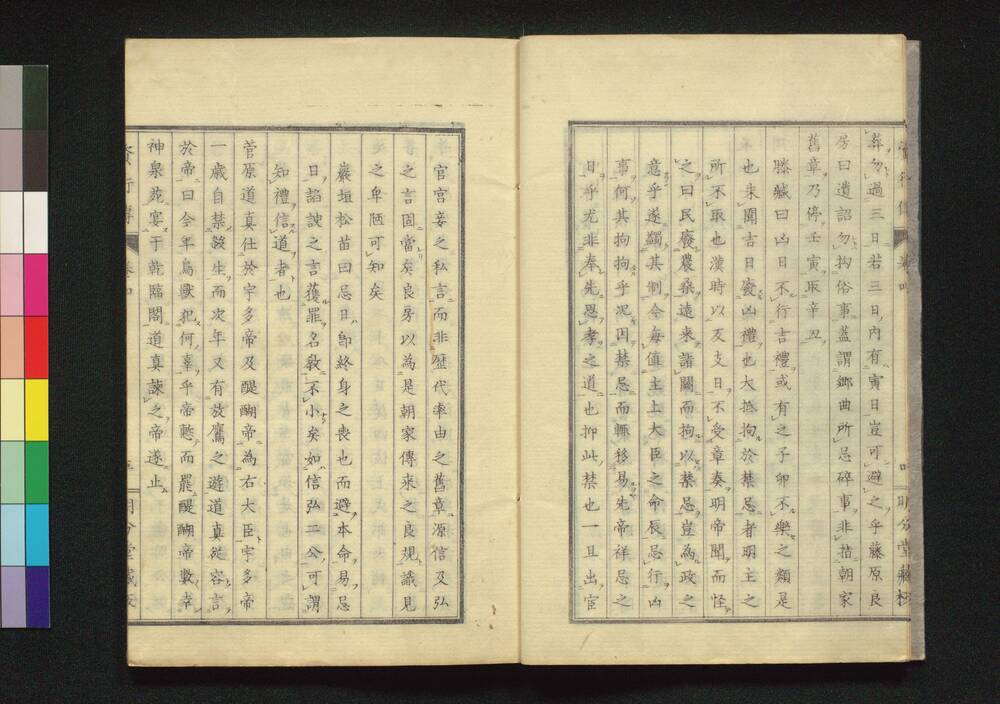 葬勿過三日若三日内有寅日豈可避之乎藤原良
房曰遺詔勿拘俗事蓋謂郷曲所忌碎事非指朝家
舊章乃停壬寅取辛丑
滕臧曰凶日不行吉禮或有之子卯不樂之類是
也未聞吉日廢凶禮也大抵拘於禁忌者明主之
所不取也漢時以反支日不受章奏明帝聞而怪
之曰民廢農桑遠来詣闕而拘以禁忌豈為政之
意乎遂蠲其制今每値主上大臣之命辰忌行凶
事何其拘拘乎况因禁忌而輙移易先帝祥忌之
日乎尤非奉先思孝之道也抑此禁也一旦出宦
官宮妾之私言而非歴代率由之舊章源信及弘
之言固當矣良房以為是朝家傳来之良規識見
之卑陋可知矣
巖垣松苗曰忌日即終身之喪也而避本命易忌
日諂諛之言獲罪名教不小矣如信弘二公可謂
知禮信道者也
菅原道真仕於宇多帝及醍醐帝為右大臣宇多帝
一歳自禁殺生而次年又有放鷹之遊道真従容言
於帝曰今年鳥獸犯何辜乎帝慙而罷醍醐帝數幸
神泉苑宴于乾臨閣道真諫之帝遂止